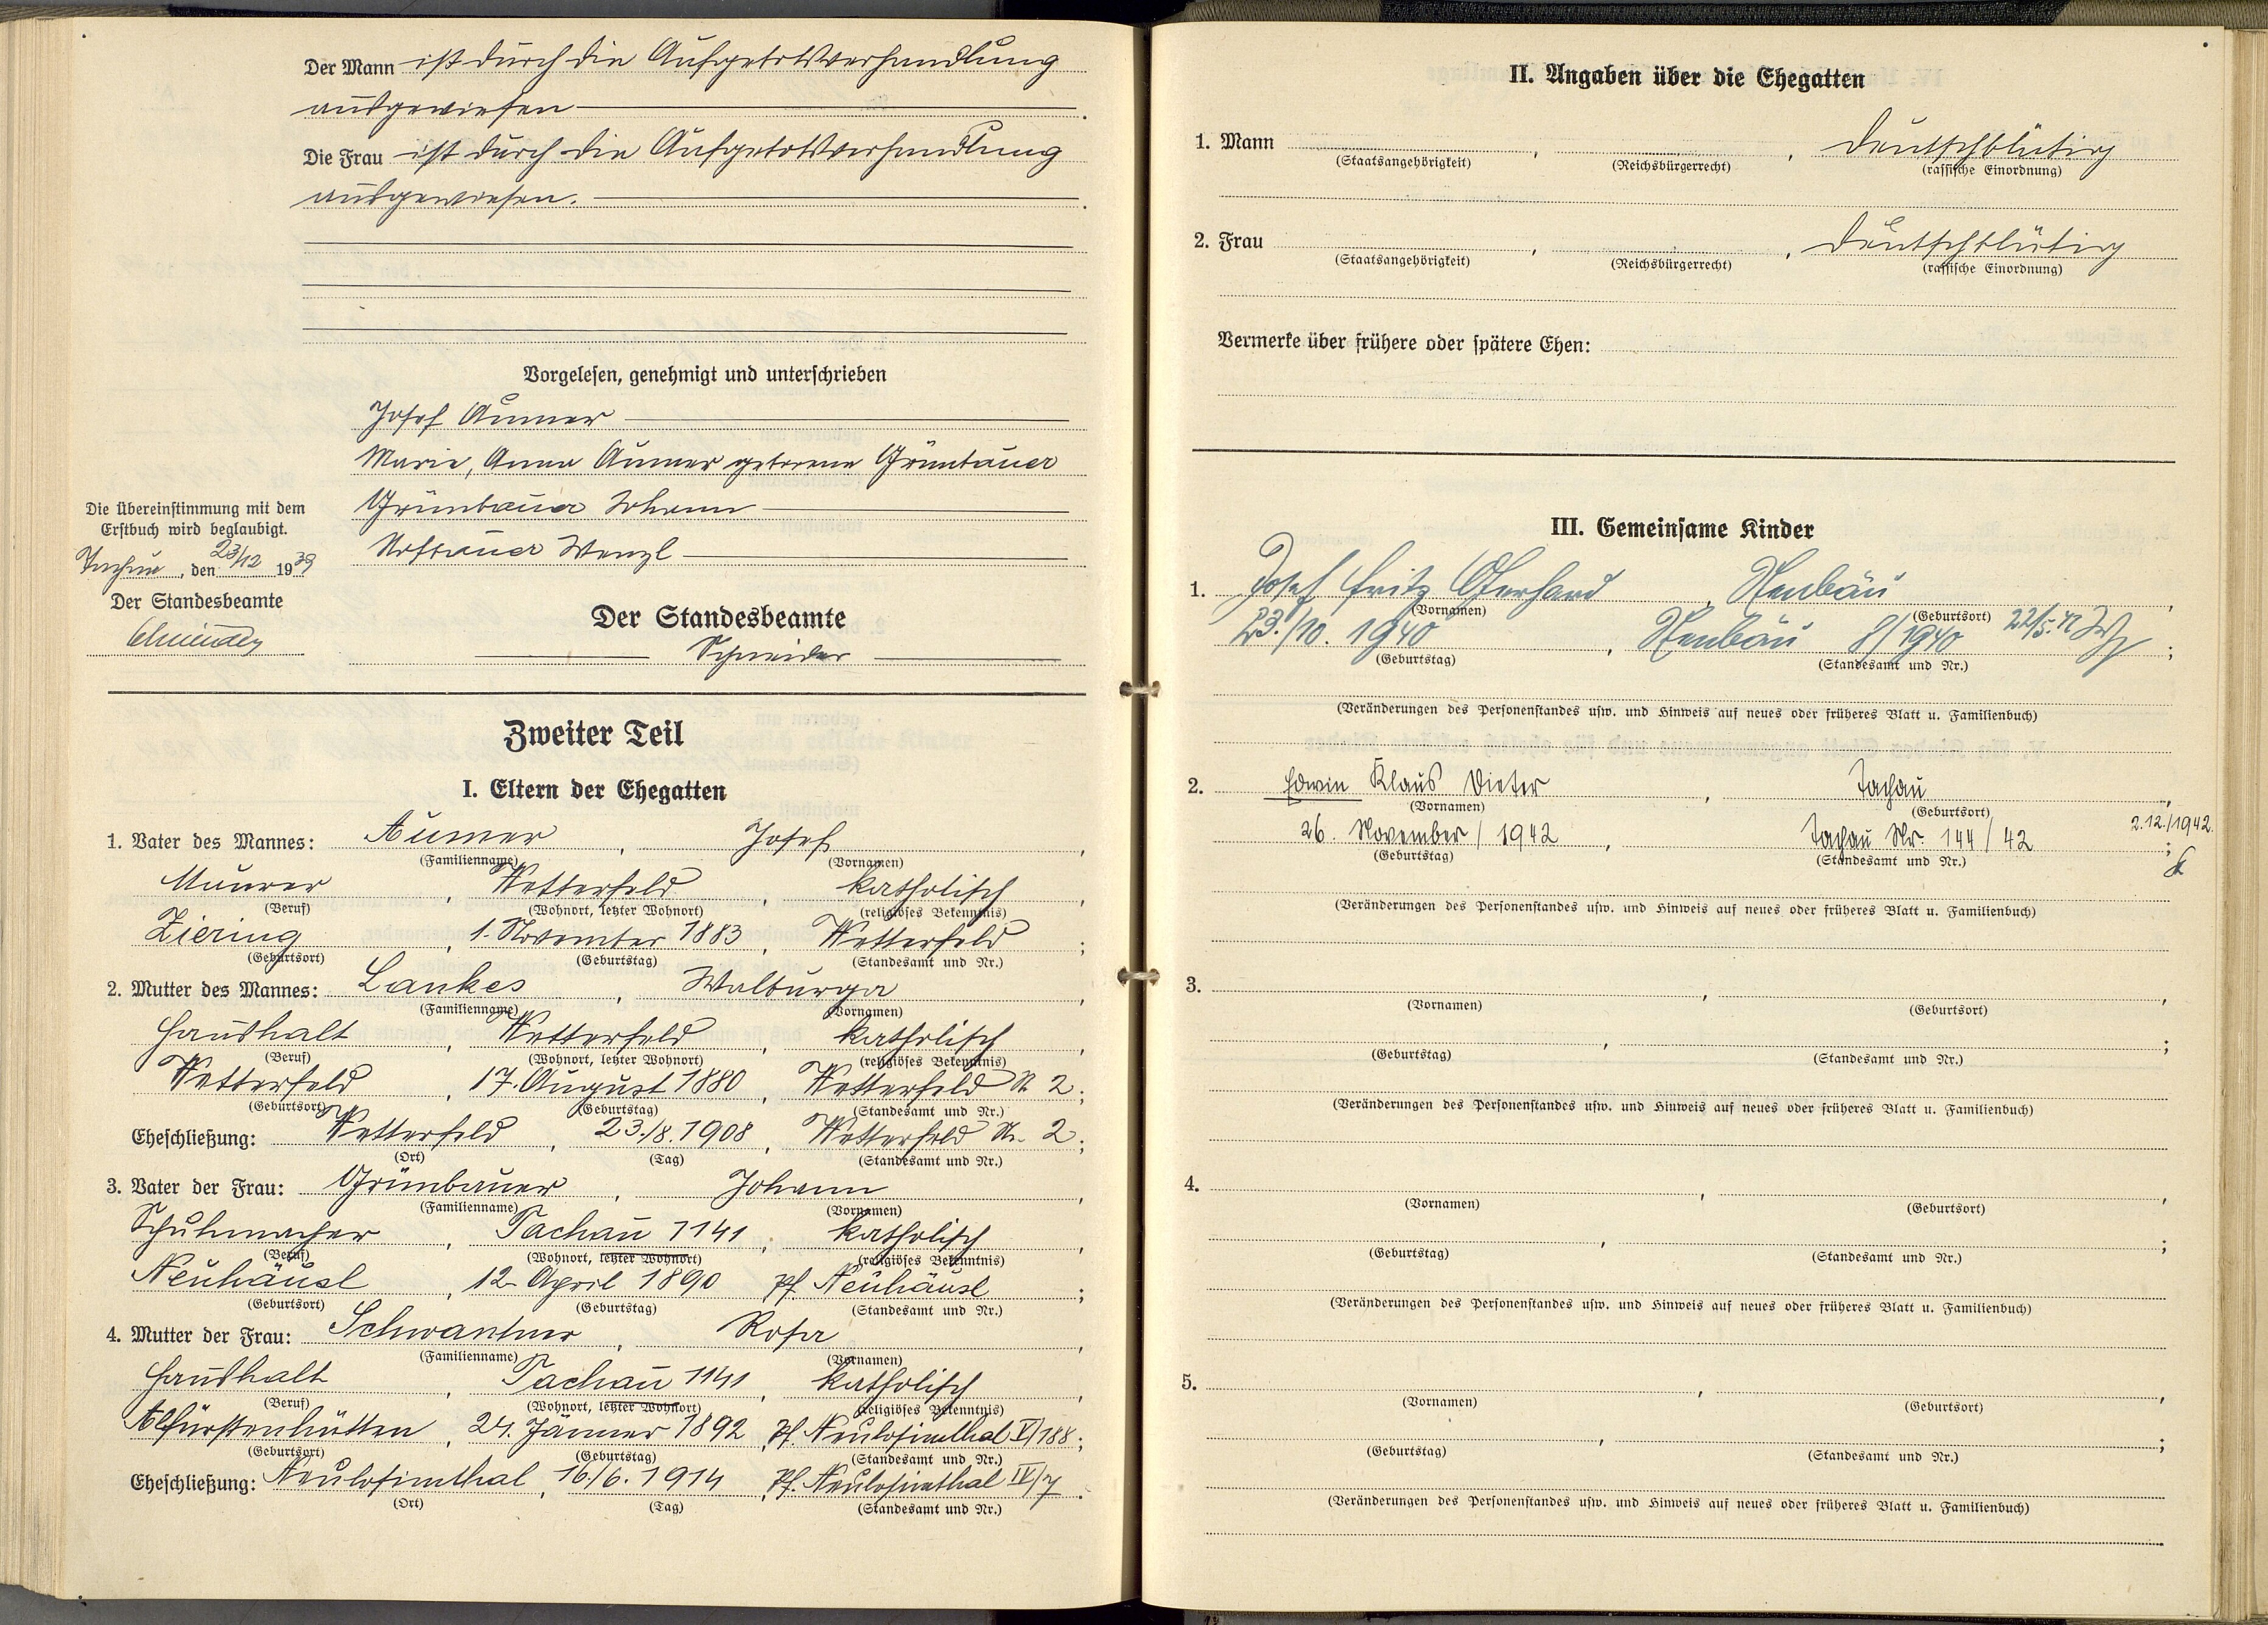 Der Mann ist durch die Aufgebotsverhandlung
ausgewiesen
Die Frau ist durch die Aufgebotsverhandlung
ausgewiesen.
Vorgelesen, genehmigt und unterschrieben
Josef Aumer
Marie, Anna Aumer geborene Grünbauer
Grünbauer Johann
Wenzl
Die Übereinstimmung mit dem
Erstbuch wird beglaubigt.
Tachau, den 23/12 1939
Der Standesbeamte
Der Standesbeamte
Schneider
Zweiter Teil
I. Eltern der Ehegatten
1. Vater des Mannes: Aumer, Josef,
(Familienname) (Vornamen)
Maurer, Wetterfeld, katholisch,
(Beruf) (Wohnort, letzter Wohnort) (religiöses Bekenntnis)
Ziering, 1. November 1883, Wetterfeld;
(Geburtsort) (Geburtstag) (Standesamt und Nr.)
2. Mutter des Mannes: Lankes, Walburga,
(Familienname) (Vornamen)
Haushalt, Wetterfeld, katholisch,
(Beruf) (Wohnort, letzter Wohnort) (religiöses Bekenntnis)
Wetterfeld, 17. August 1880, Wetterfeld N. 2;
(Geburtsort) (Geburtstag) (Standesamt und Nr.)
Eheschließung: Wetterfeld, 23./8. 1908, Wetterfeld Nr. 2;
(Ort) (Tag) (Standesamt und Nr.)
3. Vater der Frau: Grünbauer, Johann,
(Familienname) (Vornamen)
Schuhmacher, Tachau 1141, katholisch,
(Beruf) (Wohnort, letzter Wohnort) (religiöses Bekenntnis)
Neuhäusl, 12. April 1890 Pf. Neuhäusl;
(Geburtsort) (Geburtstag) (Standesamt und Nr.)
4. Mutter der Frau: Schwantner, Rosa,
(Familienname) (Vornamen)
Haushalt, Tachau 1141, katholisch,
(Beruf) (Wohnort, letzter Wohnort) (religiöses Bekenntnis)
Altfürstenhütten, 24. Jänner 1892, Pf. Neulosimthal V/188;
(Geburtsort) (Geburtstag) (Standesamt und Nr.)
Eheschließung: Neulosimthal, 16./6. 1914, Pf. Neulosimthal IV/7.
(Ort) (Tag) (Standesamt und Nr.)
II. Angaben über die Ehegatten
1. Mann , , deutschblütig
(Staatsangehörigkeit) (Reichsbürgerrecht) (rassische Einordnung)
2. Frau , , deutschblütig
(Staatsangehörigkeit) (Reichsbürgerrecht) (rassische Einordnung)
Vermerke über frühere oder spätere Ehen:
III. Gemeinsame Kinder
1. Josef Fritz Gerhard, Neubäu,
(Vornamen) (Geburtsort)
23./10. 1940, Neubäu 8/1940 22/5.41;
(Geburtstag) (Standesamt und Nr.)
(Veränderungen des Personenstandes usw. und Hinweis auf neues oder früheres Blatt u. Familienbuch)
2. Edwin Klaus Dieter, Tachau,
(Vornamen) (Geburtsort)
26. November / 1942, Tachau Nr. 144 / 42; 2.12./1942.
(Geburtstag) (Standesamt und Nr.)
(Veränderungen des Personenstandes usw. und Hinweis auf neues oder früheres Blatt u. Familienbuch)
3. , ,
(Vornamen) (Geburtsort)
, ;
(Geburtstag) (Standesamt und Nr.)
(Veränderungen des Personenstandes usw. und Hinweis auf neues oder früheres Blatt u. Familienbuch)
4. , ,
(Vornamen) (Geburtsort)
, ;
(Geburtstag) (Standesamt und Nr.)
(Veränderungen des Personenstandes usw. und Hinweis auf neues oder früheres Blatt u. Familienbuch)
5. , ,
(Vornamen) (Geburtsort)
, ;
(Geburtstag) (Standesamt und Nr.)
(Veränderungen des Personenstandes usw. und Hinweis auf neues oder früheres Blatt u. Familienbuch)